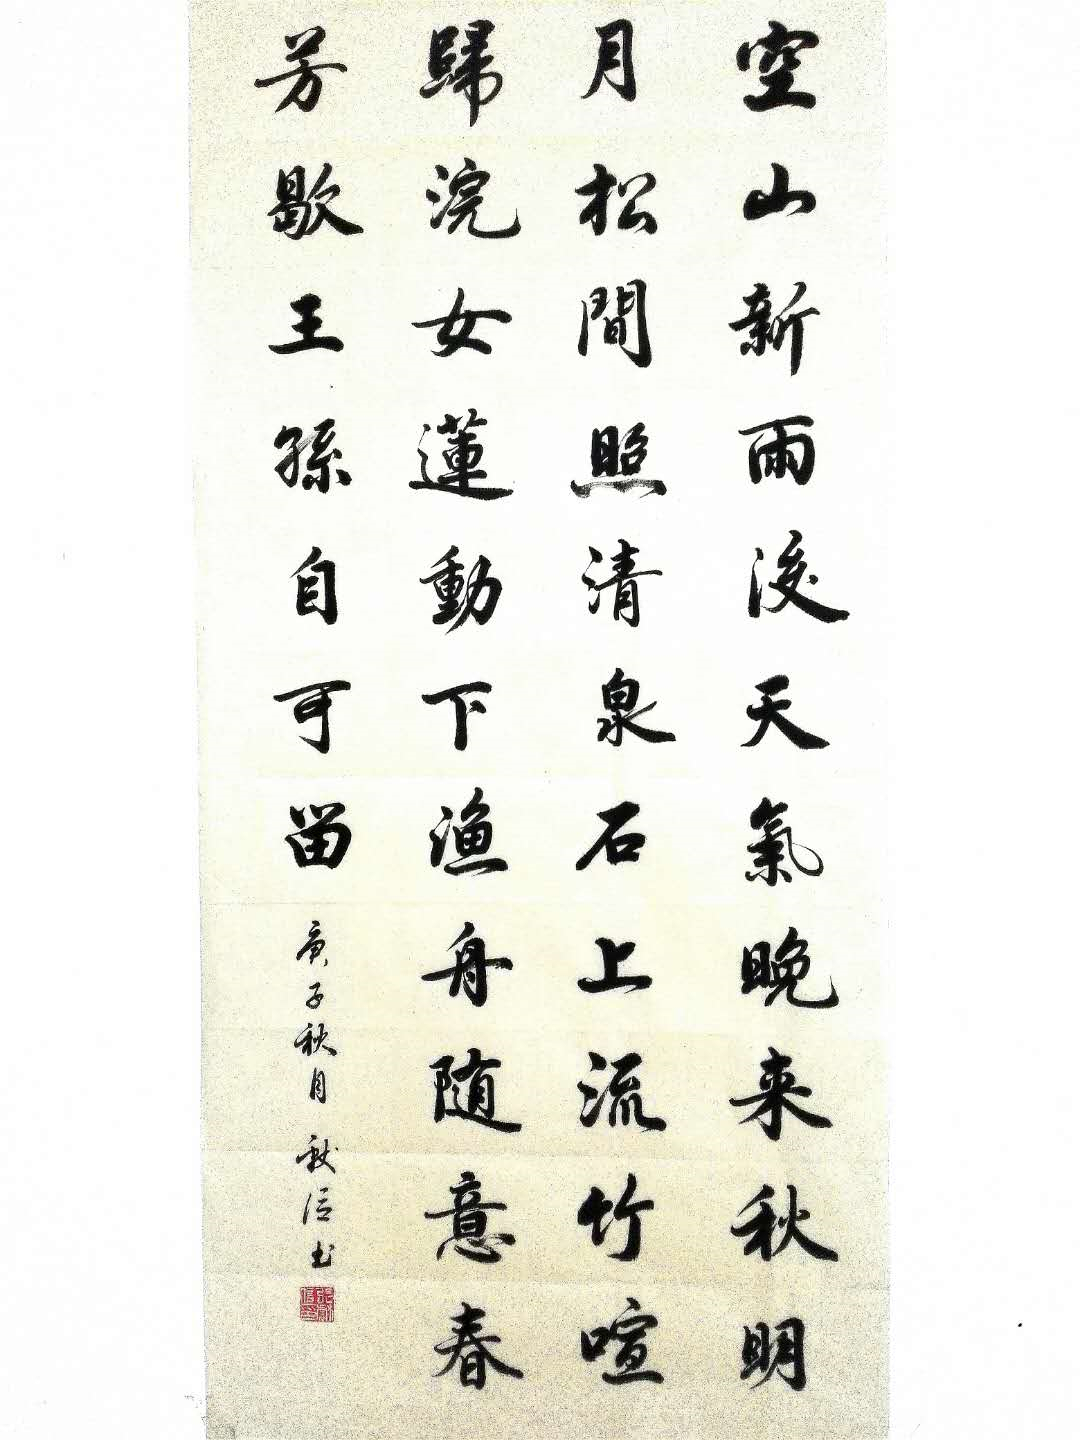 空山新雨後天氣晚来秋明
月松間照清泉石上流竹喧
歸浣女蓮動下渔舟随意春
芳歇王孫自可留
庚子秋月 献信书